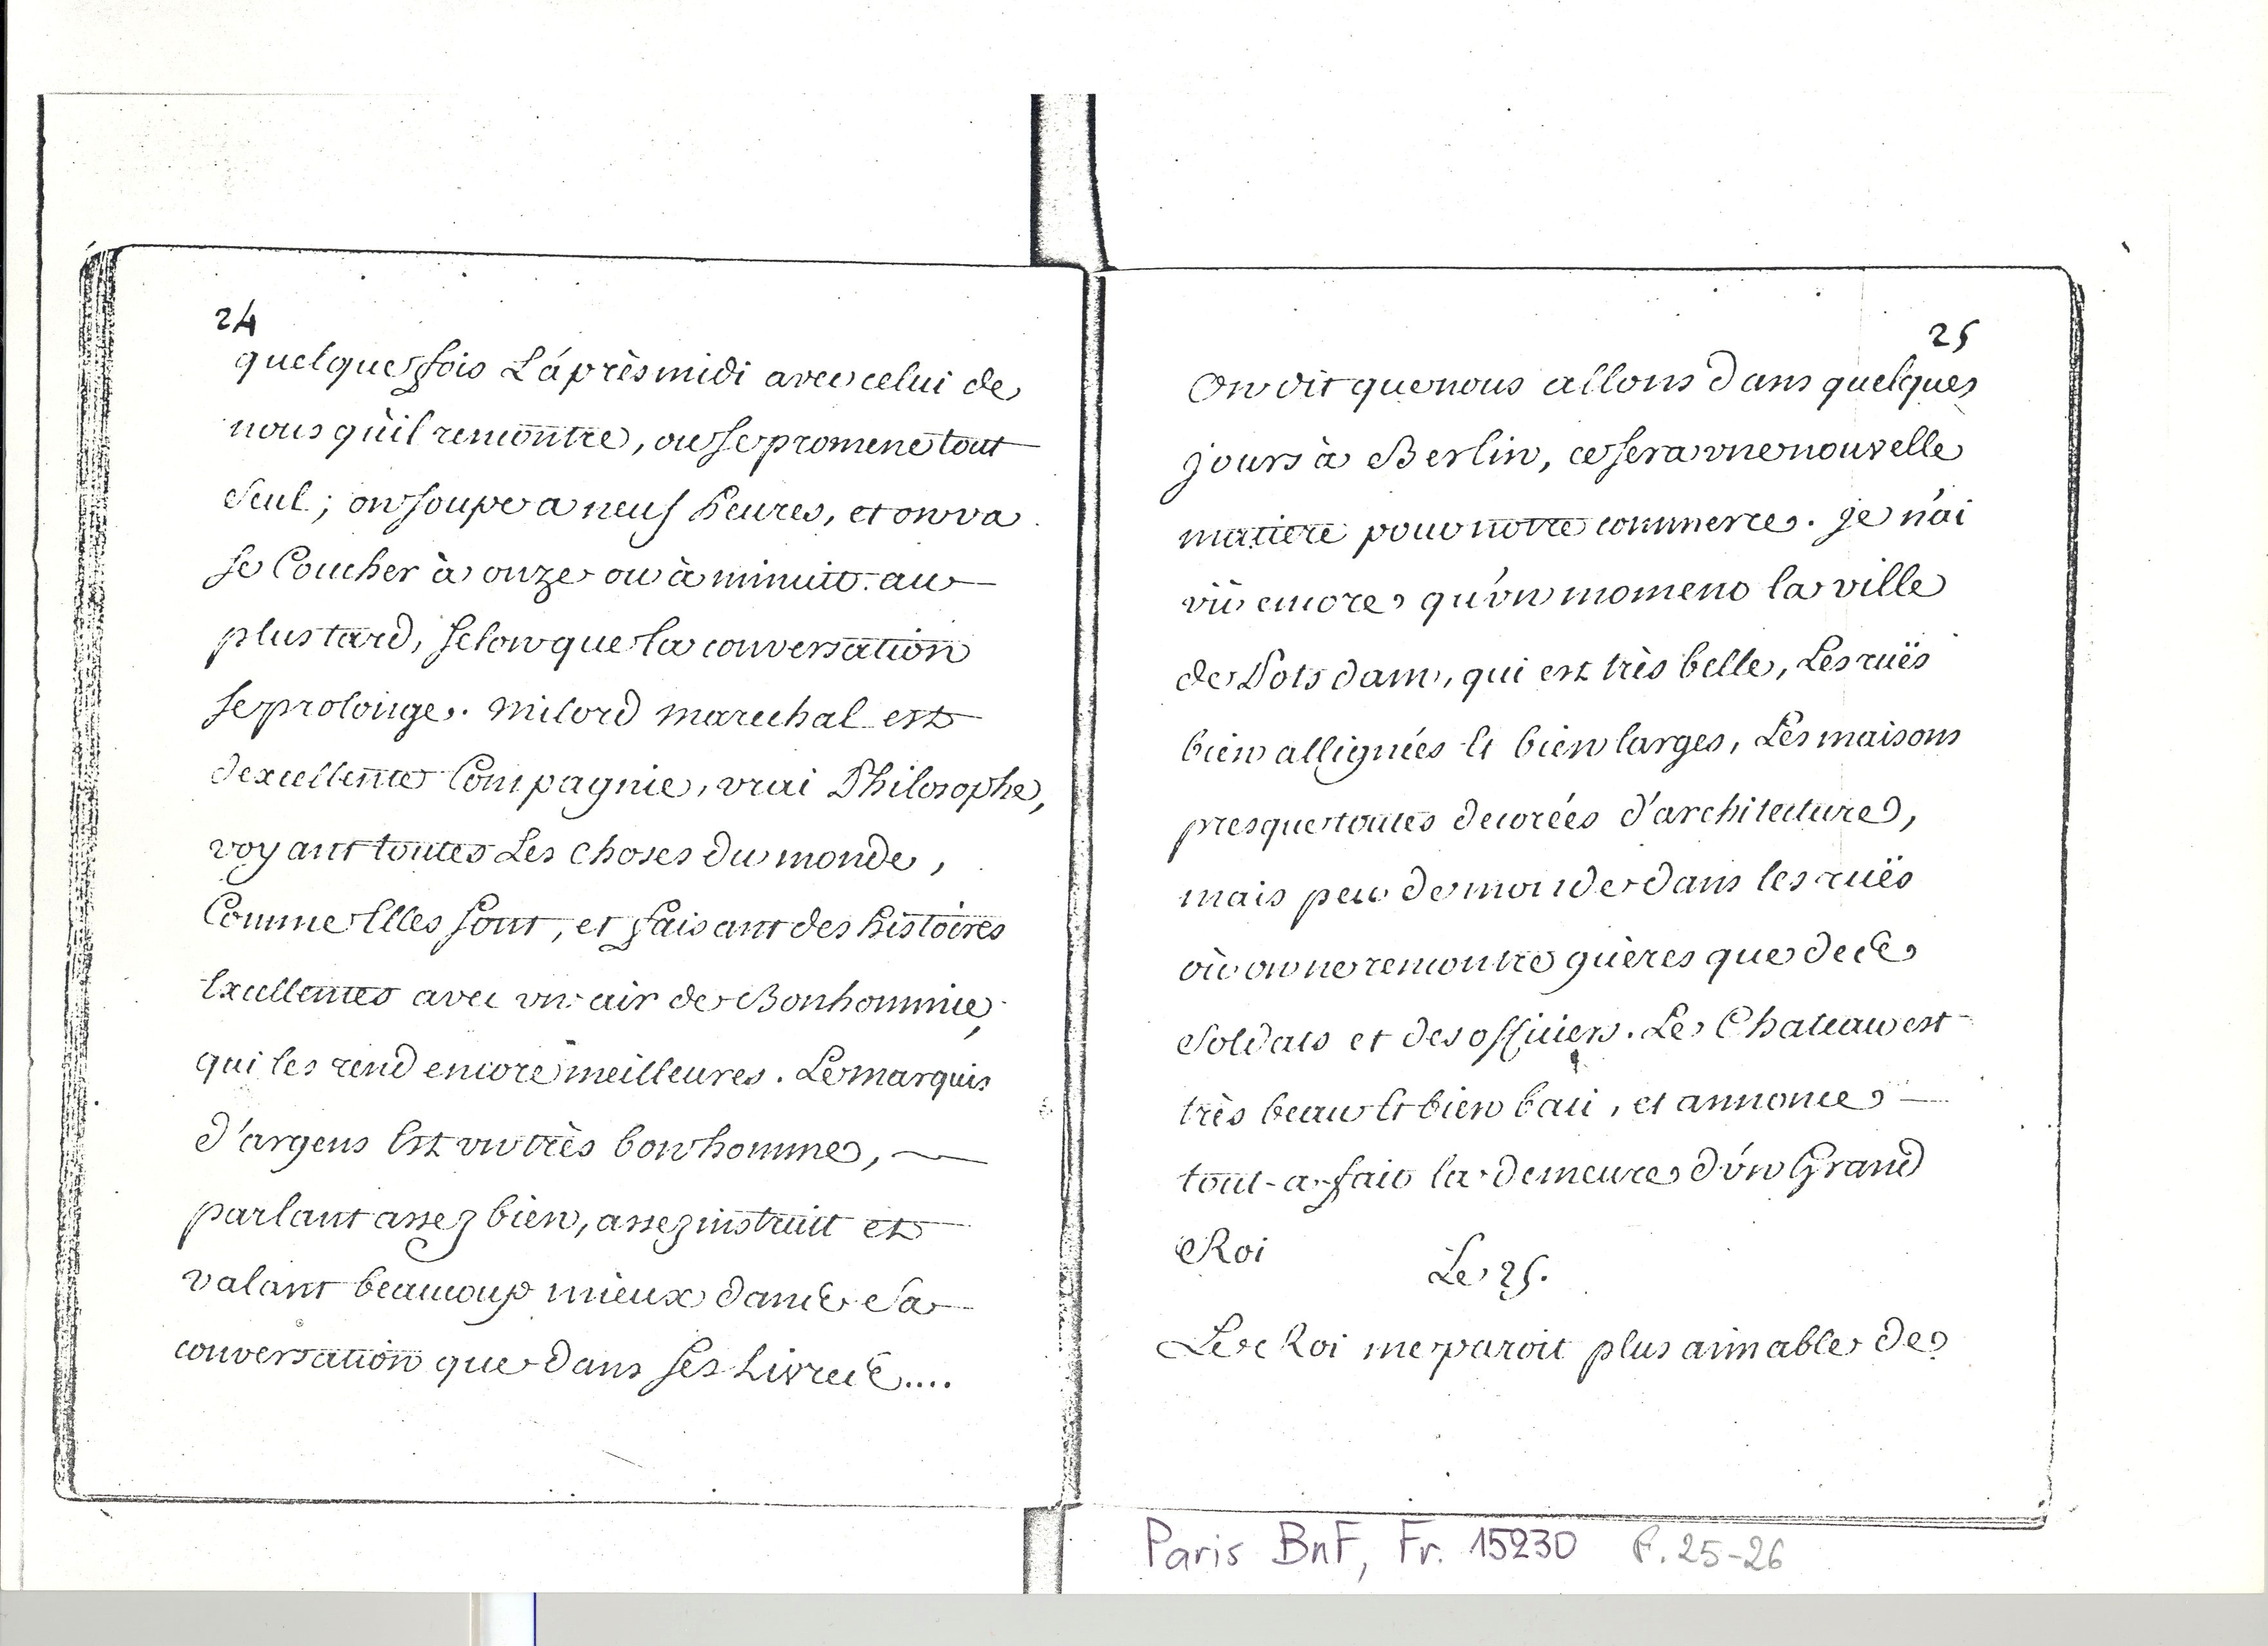 24
quelques fois L'après midi avec celui de
nous qu'il rencontre, ou se promene tout
seul ; on soupe a neuf heures, et on va
se Coucher à onze ou à minuit au
plus tard, selon que la conversation
se prolonge. milord marechal est
dexcellente Compagnie, vrai Philosophe,
voyant toutes Les choses du monde,
Comme Elles sont, et faisant des histoires
Excellentes avec vn air de Bonhommie,
qui les rend encore meilleures. Le marquis
d'argens Est vn très bon homme, —
parlant assez bien, assez instruit et
valant beaucoup mieux dans sa
conversation que dans ses Livres....
25
On dit que nous allons dans quelques
jours à Berlin, ce sera vne nouvelle
matiere pour notre commerce. je n'ai
vû encore qu'vn moment la ville
de Potsdam, qui est très belle, Les ruës
bien allignées Et bien larges, Les maisons
presque toutes decorées d'architecture,
mais peu de monde dans les ruës
où on ne rencontre guères que des
soldats et des officiers. Le Chateau est
très beau Et bien bati, et annonce —
tout-a-fait la demeure d'vn Grand
Roi
Le 25.
Le Roi me paroit plus aimable de
Paris BnF, Fr. 15230 f. 25-26